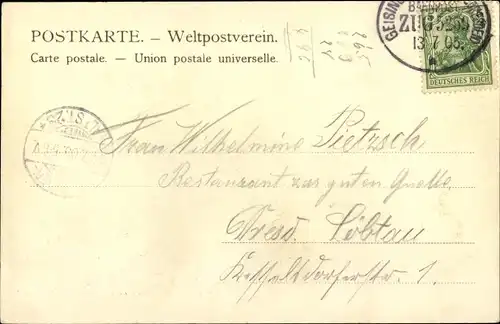 POSTKARTE. – Weltpostverein.
Carte postale. – Union postale universelle.
BAHNPOST
ZUG 5259
13 7 03.
DEUTSCHES REICH
Frau Wilhelmine Pietzsch
Restaurant zur guten Quelle
Dresd. Löbtau
Kesselsdorferstr. 1.